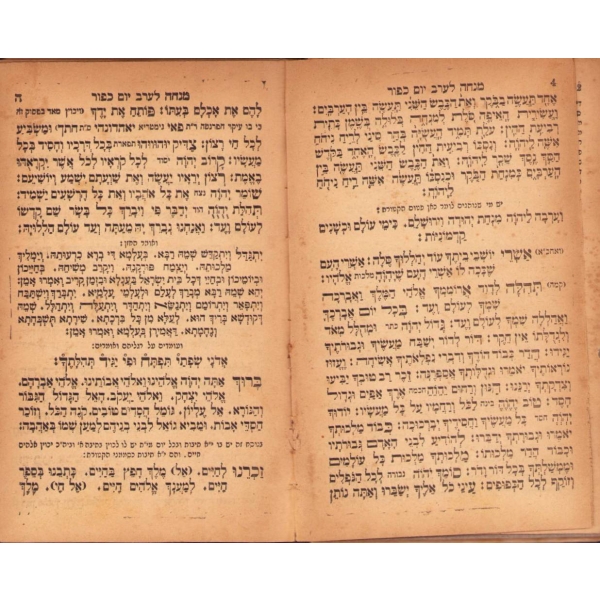 4
מנחה לערב יום כפור
אֶחָד תַּעֲשֶׂה בַבֹּקֶר וְאֵת הַכֶּבֶשׂ הַשֵּׁנִי תַּעֲשֶׂה בֵּין הָעַרְבָּיִם:
וַעֲשִׂירִית הָאֵיפָה סֹלֶת לְמִנְחָה בְּלוּלָה בְּשֶׁמֶן כָּתִית
רְבִיעִת הַהִין: עֹלַת תָּמִיד הָעֲשֻׂיָה בְּהַר סִינַי לְרֵיחַ נִיחֹחַ
אִשֶּׁה לַיהֹוָה: וְנִסְכּוֹ רְבִיעִת הַהִין לַכֶּבֶשׂ הָאֶחָד בַּקֹּדֶשׁ
הַסֵּךְ נֶסֶךְ שֵׁכָר לַיהֹוָה: וְאֵת הַכֶּבֶשׂ הַשֵּׁנִי תַּעֲשֶׂה בֵּין
הָעַרְבָּיִם כְּמִנְחַת הַבֹּקֶר וּכְנִסְכּוֹ תַּעֲשֶׂה אִשֵּׁה רֵיחַ נִיחֹחַ
לַיהֹוָה:
וְעָרְבָה לַיהֹוָה מִנְחַת יְהוּדָה וִירוּשָׁלָיִם. כִּימֵי עוֹלָם וּכְשָׁנִים
קַדְמוֹנִיּוֹת:
אַשְׁרֵי יוֹשְׁבֵי בֵיתֶךָ עוֹד יְהַלְלוּךָ סֶּלָה: אַשְׁרֵי הָעָם
שֶׁכָּכָה לּוֹ אַשְׁרֵי הָעָם שֶׁיְהֹוָה מלכות אֱלֹהָיו:
תְּהִלָּה לְדָוִד אֲרוֹמִמְךָ אֱלֹהַי הַמֶּלֶךְ וַאֲבָרְכָה
שִׁמְךָ לְעוֹלָם וָעֶד: בְּכָל יוֹם אֲבָרְכֶךָּ
וַאֲהַלְלָה שִׁמְךָ לְעוֹלָם וָעֶד: גָּדוֹל יְהֹוָה כתר וּמְהֻלָּל מְאֹד
וְלִגְדֻלָּתוֹ אֵין חֵקֶר: דּוֹר לְדוֹר יְשַׁבַּח מַעֲשֶׂיךָ וּגְבוּרֹתֶיךָ
יַגִּידוּ: הֲדַר כְּבוֹד הוֹדֶךָ וְדִבְרֵי נִפְלְאֹתֶיךָ אָשִׂיחָה: וֶעֱזוּז
נוֹרְאֹתֶיךָ יֹאמֵרוּ וּגְדֻלָּתְךָ אֲסַפְּרֶנָּה: זֵכֶר רַב טוּבְךָ יַבִּיעוּ
וְצִדְקָתְךָ יְרַנֵּנוּ: חַנּוּן וְרַחוּם יְהֹוָה חכמה אֶרֶךְ אַפַּיִם וּגְדָל
חָסֶד: טוֹב יְהֹוָה בינה לַכֹּל וְרַחֲמָיו עַל כָּל מַעֲשָׂיו: יוֹדוּךָ
יְהֹוָה חסד כָּל מַעֲשֶׂיךָ וַחֲסִידֶיךָ יְבָרְכוּכָה: כְּבוֹד מַלְכוּתְךָ
יֹאמֵרוּ וּגְבוּרָתְךָ יְדַבֵּרוּ: לְהוֹדִיעַ לִבְנֵי הָאָדָם גְּבוּרֹתָיו
וּכְבוֹד הֲדַר מַלְכוּתוֹ: מַלְכוּתְךָ מַלְכוּת כָּל עוֹלָמִים
וּמֶמְשַׁלְתְּךָ בְּכָל דּוֹר וָדֹר: סוֹמֵךְ יְהֹוָה גבורה לְכָל הַנֹּפְלִים
וְזוֹקֵף לְכָל הַכְּפוּפִים: עֵינֵי כֹל אֵלֶיךָ יְשַׂבֵּרוּ וְאַתָּה נוֹתֵן
מנחה לערב יום כפור
ה
לָהֶם אֶת אָכְלָם בְּעִתּוֹ: פּוֹתֵחַ אֶת יָדֶךָ ויכוין מאד בפסוק זה
כי בו עיקר הפרנסה וּמַשְׂבִּיעַ
לְכָל חַי רָצוֹן: צַדִּיק תפארת בְּכָל דְּרָכָיו וְחָסִיד בְּכָל
מַעֲשָׂיו: קָרוֹב יְהֹוָה יסוד לְכָל קֹרְאָיו לְכֹל אֲשֶׁר יִקְרָאֻהוּ
בֶאֱמֶת: רְצוֹן יְרֵאָיו יַעֲשֶׂה וְאֶת שַׁוְעָתָם יִשְׁמַע וְיוֹשִׁיעֵם:
שׁוֹמֵר יְהֹוָה נצח אֶת כָּל אֹהֲבָיו וְאֵת כָּל הָרְשָׁעִים יַשְׁמִיד:
תְּהִלַּת יְהֹוָה הוד יְדַבֶּר פִּי וִיבָרֵךְ כָּל בָּשָׂר שֵׁם קָדְשׁוֹ
לְעוֹלָם וָעֶד: וַאֲנַחְנוּ נְבָרֵךְ יָהּ מֵעַתָּה וְעַד עוֹלָם הַלְלוּיָהּ:
יִתְגַּדַּל וְיִתְקַדַּשׁ שְׁמֵהּ רַבָּא. בְּעָלְמָא דִּי בְרָא כִרְעוּתֵהּ. וְיַמְלִיךְ
מַלְכוּתֵהּ. וְיַצְמַח פּוּרְקָנֵהּ. וִיקָרֵב מְשִׁיחֵהּ. בְּחַיֵּיכוֹן
וּבְיוֹמֵיכוֹן וּבְחַיֵּי דְכָל בֵּית יִשְׂרָאֵל בַּעֲגָלָא וּבִזְמַן קָרִיב וְאִמְרוּ אָמֵן:
יְהֵא שְׁמֵהּ רַבָּא. מְבָרַךְ לְעָלַם וּלְעָלְמֵי עָלְמַיָּא. יִתְבָּרַךְ וְיִשְׁתַּבַּח
וְיִתְפָּאַר וְיִתְרוֹמַם וְיִתְנַשֵּׂא וְיִתְהַדָּר וְיִתְעַלֶּה וְיִתְהַלָּל שְׁמֵהּ
דְּקוּדְשָׁא בְּרִיךְ הוּא. לְעֵלָּא מִן כָּל בִּרְכָתָא. שִׁירָתָא. תֻּשְׁבְּחָתָא
וְנֶחָמָתָא. דַּאֲמִירָן בְּעָלְמָא וְאִמְרוּ אָמֵן:
ועומדים על רגליהם ואומרים:
אֲדֹנָי שְׂפָתַי תִּפְתָּח וּפִי יַגִּיד תְּהִלָּתֶךָ:
בָּרוּךְ אַתָּה יְהֹוָה אֱלֹהֵינוּ וֵאלֹהֵי אֲבוֹתֵינוּ. אֱלֹהֵי אַבְרָהָם.
אֱלֹהֵי יִצְחָק. וֵאלֹהֵי יַעֲקֹב. הָאֵל הַגָּדוֹל הַגִּבּוֹר
וְהַנּוֹרָא. אֵל עֶלְיוֹן. גּוֹמֵל חֲסָדִים טוֹבִים. קוֹנֵה הַכֹּל. וְזוֹכֵר
חַסְדֵּי אָבוֹת. וּמֵבִיא גוֹאֵל לִבְנֵי בְנֵיהֶם לְמַעַן שְׁמוֹ בְּאַהֲבָה:
זָכְרֵנוּ לְחַיִּים. (אֵל) מֶלֶךְ חָפֵץ בַּחַיִּים. כָּתְבֵנוּ בְּסֵפֶר
חַיִּים. לְמַעֲנָךְ אֱלֹהִים חַיִּים. (אֵל חַי). מֶלֶךְ